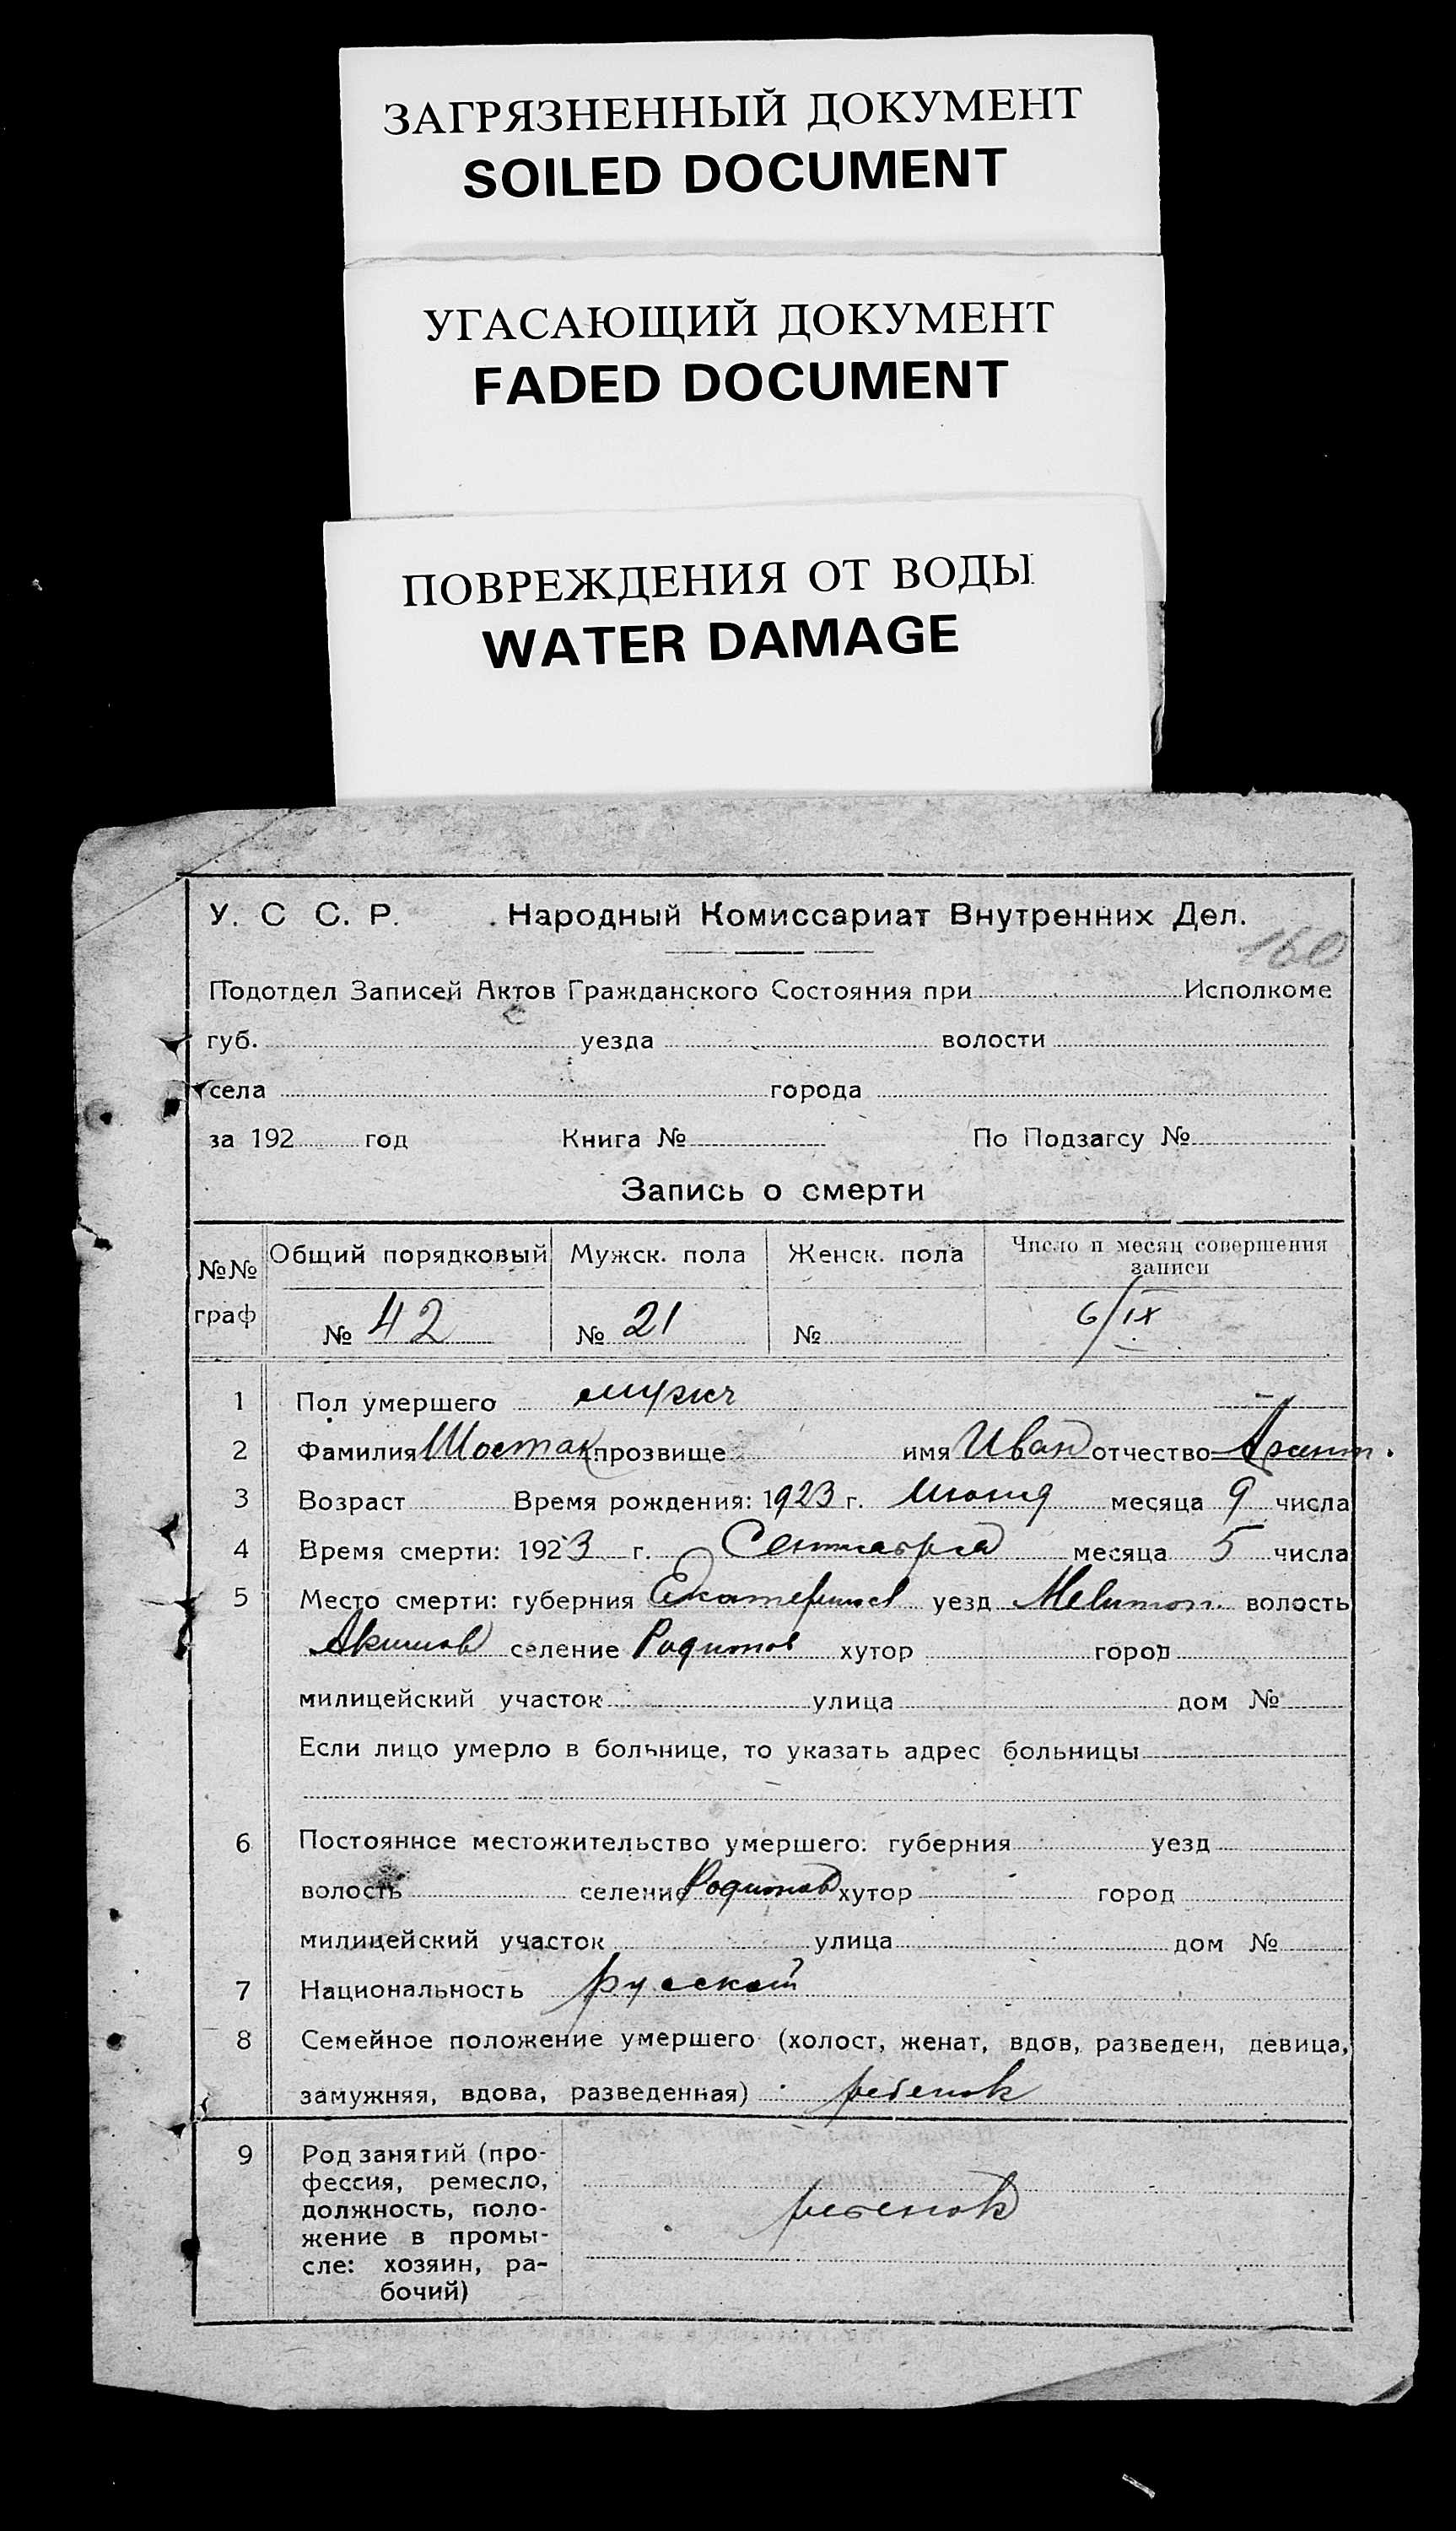 ЗАГРЯЗНЕННЫЙ ДОКУМЕНТ
SOILED DOCUMENT
УГАСАЮЩИЙ ДОКУМЕНТ
FADED DOCUMENT
ПОВРЕЖДЕНИЯ ОТ ВОДЫ
WATER DAMAGE
У. С С. Р. Народный Комиссариат Внутренних Дел.
160
Подотдел Записей Актов Гражданского Состояния при Исполкоме
губ. уезда волости
села города
за 192 год Книга № По Подзагсу №
Запись о смерти
№№ граф Общий порядковый Мужск. пола Женск. пола Число и месяц совершения записи
№ 42 № 21 № 6/IX
1 Пол умершего мужч
2 Фамилия Шостак прозвище имя Иван отчество
3 Возраст Время рождения: 1923 г. месяца 9 числа
4 Время смерти: 1923 г. Сентября месяца 5 числа
5 Место смерти: губерния Екатериносл уезд Мелитоп. волость
Акимов селение Родионов хутор город
милицейский участок улица дом №
Если лицо умерло в больнице, то указать адрес больницы
6 Постоянное местожительство умершего: губерния уезд
волость селение Родионов хутор город
милицейский участок улица дом №
7 Национальность русский
8 Семейное положение умершего (холост, женат, вдов, разведен, девица,
замужняя, вдова, разведенная) ребенок
9 Род занятий (про-
фессия, ремесло,
должность, поло-
жение в промы-
сле: хозяин, ра-
бочий)
ребенок